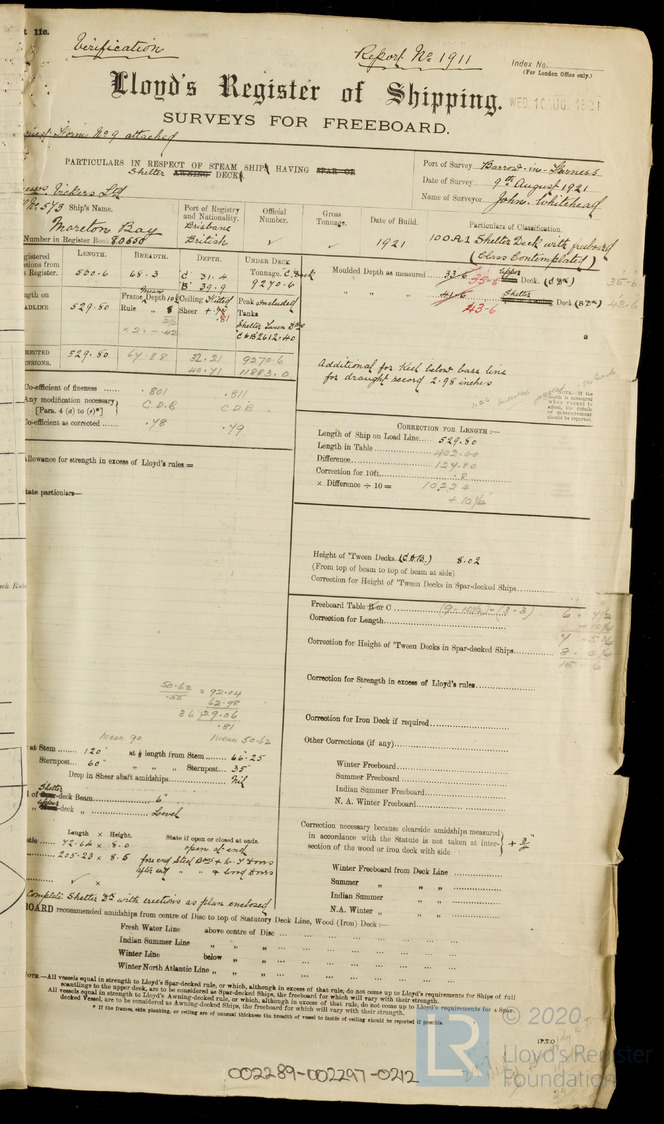 11c.
Verification
Report No 1911
Index No.
(For London Office only.)
Lloyd's Register of Shipping.
WED. 10 AUG. 1921
SURVEYS FOR FREEBOARD.
Form No 9 attached
PARTICULARS IN RESPECT OF STEAM SHIP HAVING SPAR OR
Shelter AWNING DECK
Port of Survey Barrow-in-Furness
Date of Survey 9th August 1921
Name of Surveyor John Whitehead
Vickers Ltd
No 573 Ship's Name.
Moreton Bay
Number in Register Book 80650
Port of Registry and Nationality.
Brisbane
British
Official Number.
Gross Tonnage.
Date of Build.
1921
Particulars of Classification.
100A1 Shelter Deck with freeboard
(Class Contemplated)
LENGTH. BREADTH. DEPTH. UNDER DECK
Register. 530.6 68.3 C 31.4 Tonnage. C Deck
B 39.9 9270.6
529.80
Frame Depth
Rule
Ceiling
Sheer
.81
Peak included
Tanks
529.80 67.88 32.21 9270.6
40.71 11883.0
Moulded Depth as measured 33-6 35-6 Upper Deck.
41-6 Shelter Deck
43-6
35-6
43-6
Additional for Keel below base line
for draught record 2.98 inches
Co-efficient of fineness .801 .811
Any modification necessary C.D.B C.D.B.
[Para. 4 (a) to (e)*]
Co-efficient as corrected .78 .79
NOTE.—If the depth is measured when vessel is afloat, the details of measurement should be reported.
CORRECTION FOR LENGTH:—
Length of Ship on Load Line 529.80
Length in Table 402.00
Difference 127.80
Correction for 10ft. .8
× Difference ÷ 10 = 10224
+ 10 1/4"
Allowance for strength in excess of Lloyd's rules =
State particulars—
Height of 'Tween Decks 8.02
(From top of beam to top of beam at side)
Correction for Height of 'Tween Decks in Spar-decked Ships
Freeboard Table B or C
Correction for Length
Correction for Height of 'Tween Decks in Spar-decked Ships
Correction for Strength in excess of Lloyd's rules
50.62 = 92.04
.55 62.98
36 29.06
.81
Correction for Iron Deck if required
Other Corrections (if any)
Mean 90 Mean 50.62
at Stem 120" at ⅛ length from Stem 66.25
Sternpost 60" " " " Sternpost 35"
Drop in Sheer abaft amidships Nil
Shelter
Spar-deck Beam 6"
Upper
-deck " Level
Winter Freeboard
Summer Freeboard
Indian Summer Freeboard
N. A. Winter Freeboard
Length × Height. State if open or closed at ends.
72.64 × 8.0 open aft end
205.23 × 8.5
Correction necessary because clearside amidships measured
in accordance with the Statute is not taken at inter-
section of the wood or iron deck with side
+ 3/4"
Winter Freeboard from Deck Line
Summer " "
Indian Summer " "
N.A. Winter " "
Complete Shelter Dk with erections as plan enclosed
recommended amidships from centre of Disc to top of Statutory Deck Line, Wood (Iron) Deck:—
Fresh Water Line above centre of Disc
Indian Summer Line " "
Winter Line below "
Winter North Atlantic Line " "
NOTE.—All vessels equal in strength to Lloyd's Spar-decked rule, or which, although in excess of that rule, do not come up to Lloyd's requirements for Ships of full
scantlings to the upper deck, are to be considered as Spar-decked Ships, the freeboard for which will vary with their strength.
All vessels equal in strength to Lloyd's Awning-decked rule, or which, although in excess of that rule, do not come up to Lloyd's requirements for a Spar-
decked Vessel, are to be considered as Awning-decked Ships, the freeboard for which will vary with their strength.
* If the frames, skin planking, or ceiling are of unusual thickness the breadth of vessel to inside of ceiling should be reported if possible.
[P.T.O
LR
© 2020
Lloyd's Register
Foundation
002289-002297-0212